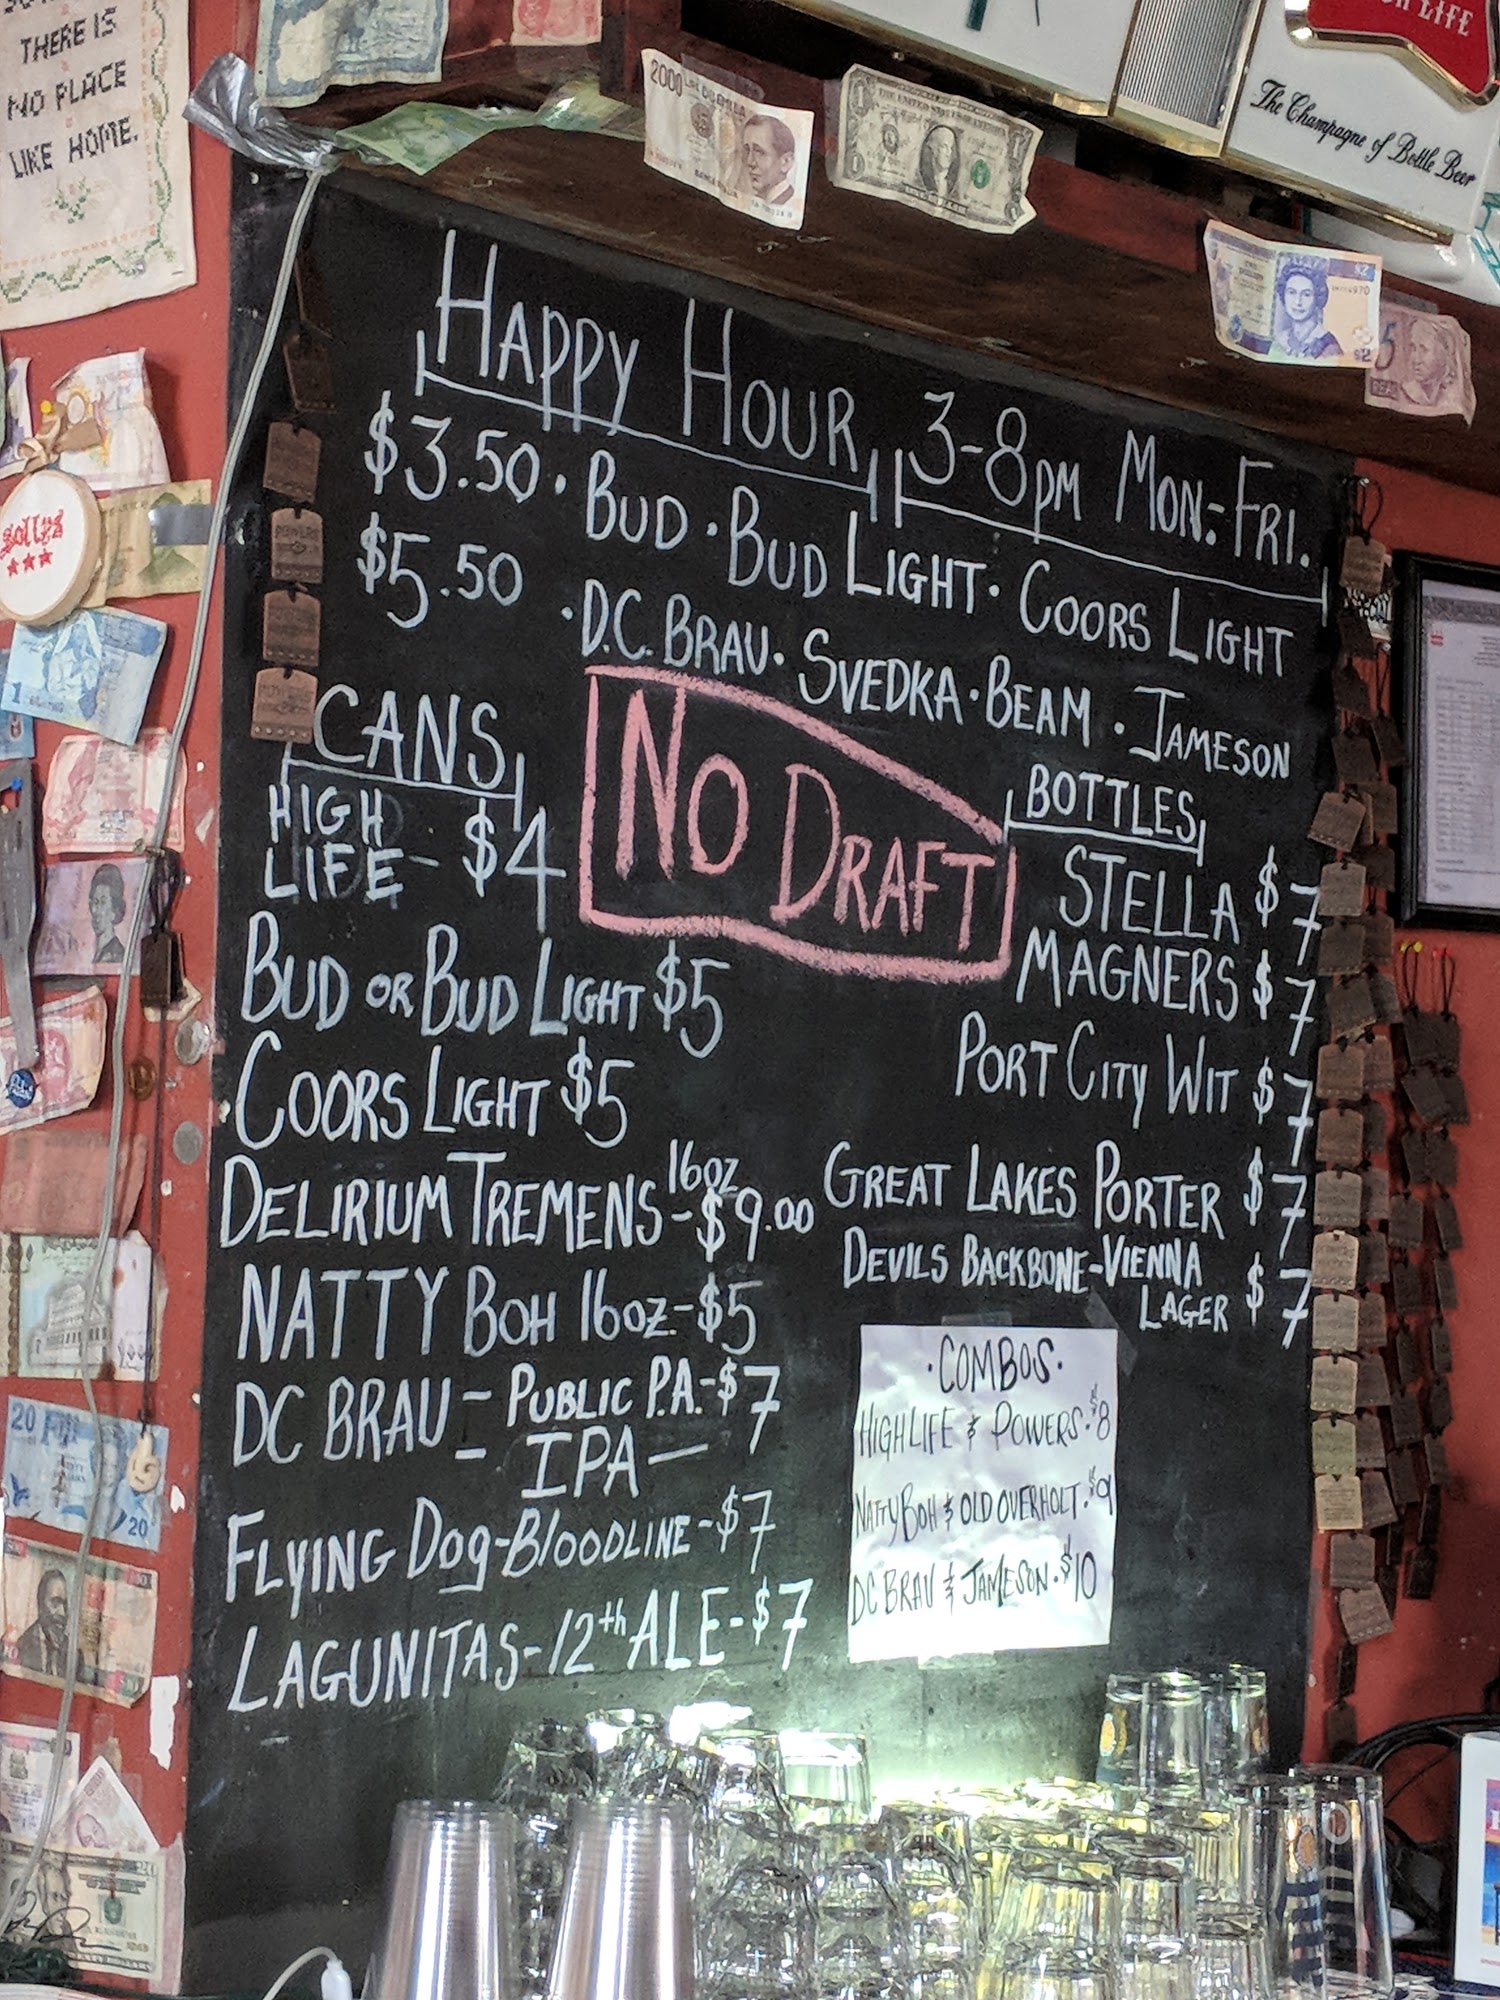 THERE IS
NO PLACE
LIKE HOME.
2000
H LIFE
The Champagne of Bottle Beer
HAPPY HOUR 3-8PM MON-FRI.
$3.50 · BUD · BUD LIGHT · COORS LIGHT
$5.50 · D.C. BRAU · SVEDKA · BEAM · JAMESON
NO DRAFT
CANS
HIGH
LIFE - $4
BUD OR BUD LIGHT $5
COORS LIGHT $5
DELIRIUM TREMENS - 16oz $9.00
NATTY BOH 16oz - $5
DC BRAU - PUBLIC P.A. - $7
- IPA -
FLYING DOG - BLOODLINE - $7
LAGUNITAS - 12th ALE - $7
BOTTLES
STELLA $7
MAGNERS $7
PORT CITY WIT $7
GREAT LAKES PORTER $7
DEVILS BACKBONE - VIENNA
LAGER $7
· COMBOS ·
HIGH LIFE & POWERS · $8
NATTY BOH & OLD OVERHOLT · $9
DC BRAU & JAMESON · $10
Solly's
$2
5
REAL
1
20 FIJI
20